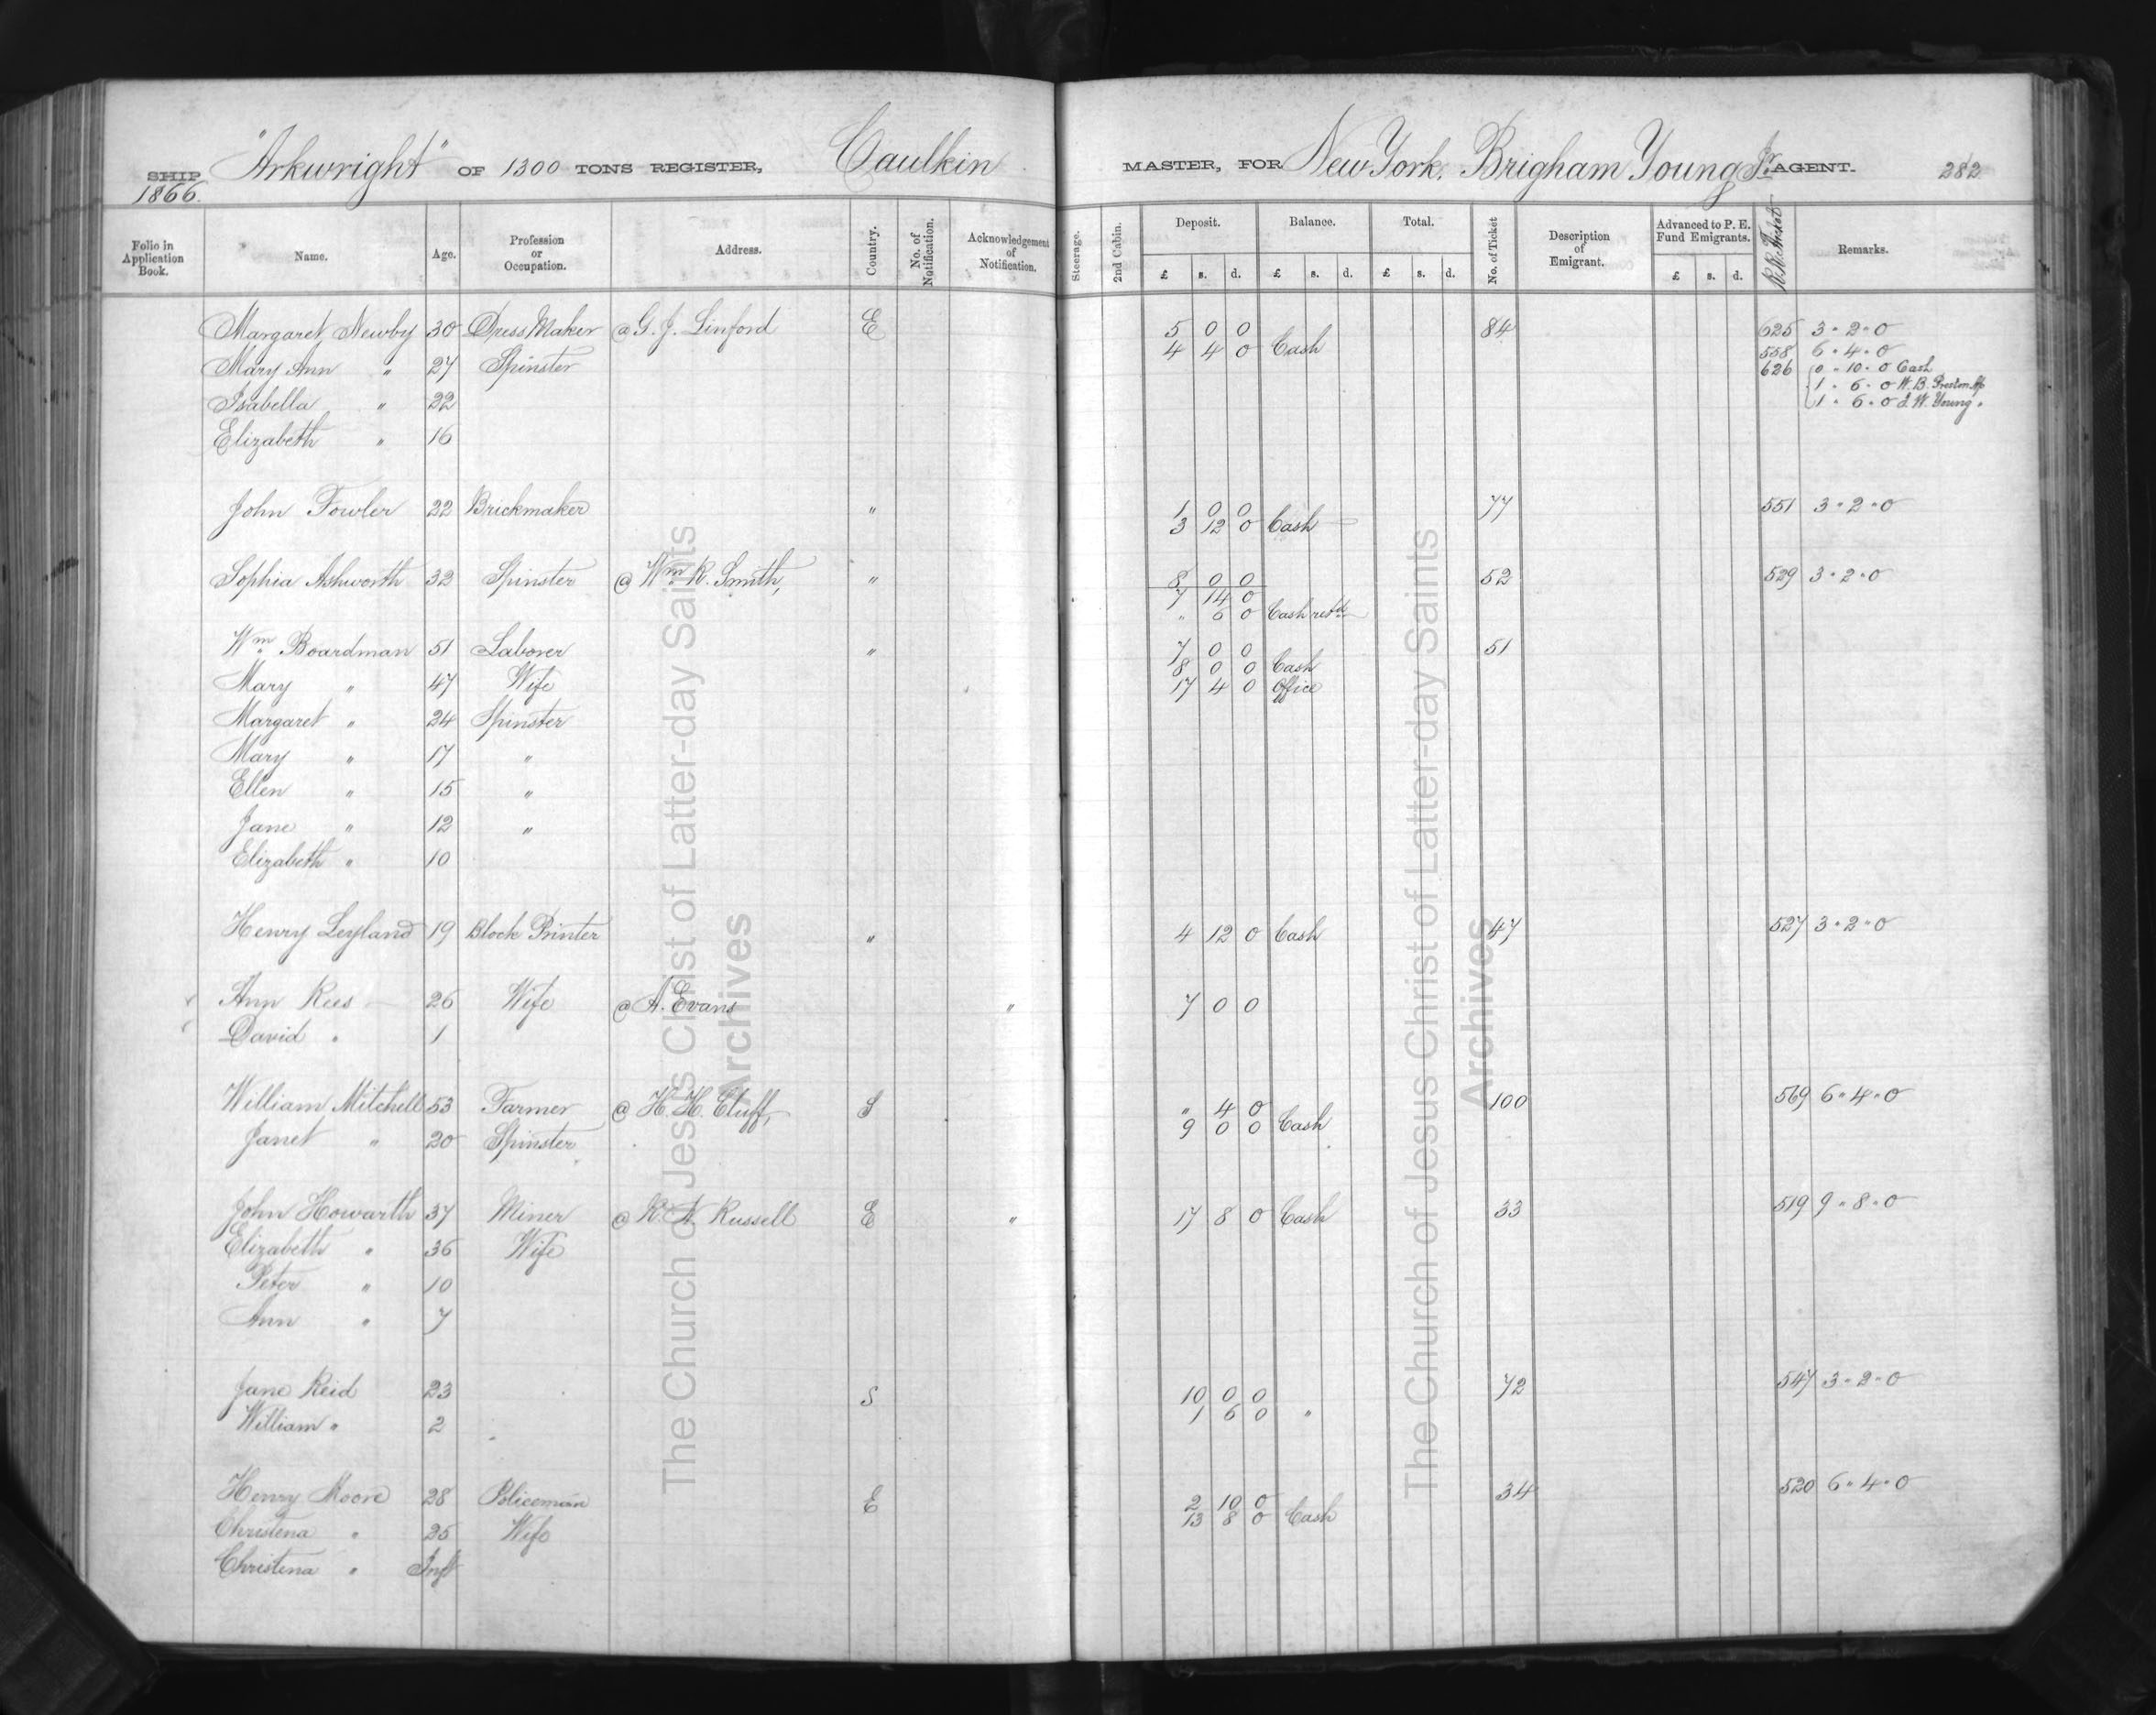 SHIP "Arkwright" OF 1300 TONS REGISTER, Caulkin MASTER, FOR New York. Brigham Young Jr. AGENT. 282
1866.
Folio in Application Book. Name. Age. Profession or Occupation. Address. Country. No. of Notification. Acknowledgement of Notification. Steerage. 2nd Cabin. Deposit. Balance. Total. No. of Ticket Description of Emigrant. Advanced to P. E. Fund Emigrants. R.R. Ticket Remarks.
£ s. d. £ s. d. £ s. d. £ s. d.
Margaret Newby 30 Dress Maker @ G. J. Linford E 5 0 0 84 625 3 - 2 - 0
4 4 0 Cash 558 6 - 4 - 0
Mary Ann " 27 Spinster 626 0 - 10 - 0 Cash
1 - 6 - 0 W. B. Preston
Isabella " 22 1 - 6 - 0 J. W. Young
Elizabeth " 16
John Fowler 22 Brickmaker " 1 0 0 77 551 3 - 2 - 0
3 12 0 Cash
Sophia Ashworth 32 Spinster @ Wm R. Smith, " 8 0 0 52 529 3 - 2 - 0
7 14 0
" 6 0 Cash retd
Wm Boardman 51 Laborer " 7 0 0 51
8 0 0 Cash
Mary " 47 Wife 17 4 0 Office
Margaret " 24 Spinster
Mary " 17 "
Ellen " 15 "
Jane " 12 "
Elizabeth " 10
Henry Leyland 19 Block Printer " 4 12 0 Cash 47 527 3 - 2 - 0
Ann Rees 26 Wife @ A. Evans " 7 0 0
David " 1
William Mitchell 53 Farmer @ H. H. Cluff, S " 4 0 100 569 6 - 4 - 0
9 0 0 Cash
Janet " 20 Spinster
John Howarth 37 Miner @ R. A. Russell E " 17 8 0 Cash 33 519 9 - 8 - 0
Elizabeth " 36 Wife
Peter " 10
Ann " 7
Jane Reid 23 S 10 0 0 72 547 3 - 2 - 0
William " 2 1 6 0 "
Henry Moore 28 Policeman E 2 10 0 34 520 6 - 4 - 0
13 8 0 Cash
Christena " 25 Wife
Christena " Inft
The Church of Jesus Christ of Latter-day Saints
Archives
The Church of Jesus Christ of Latter-day Saints
Archives